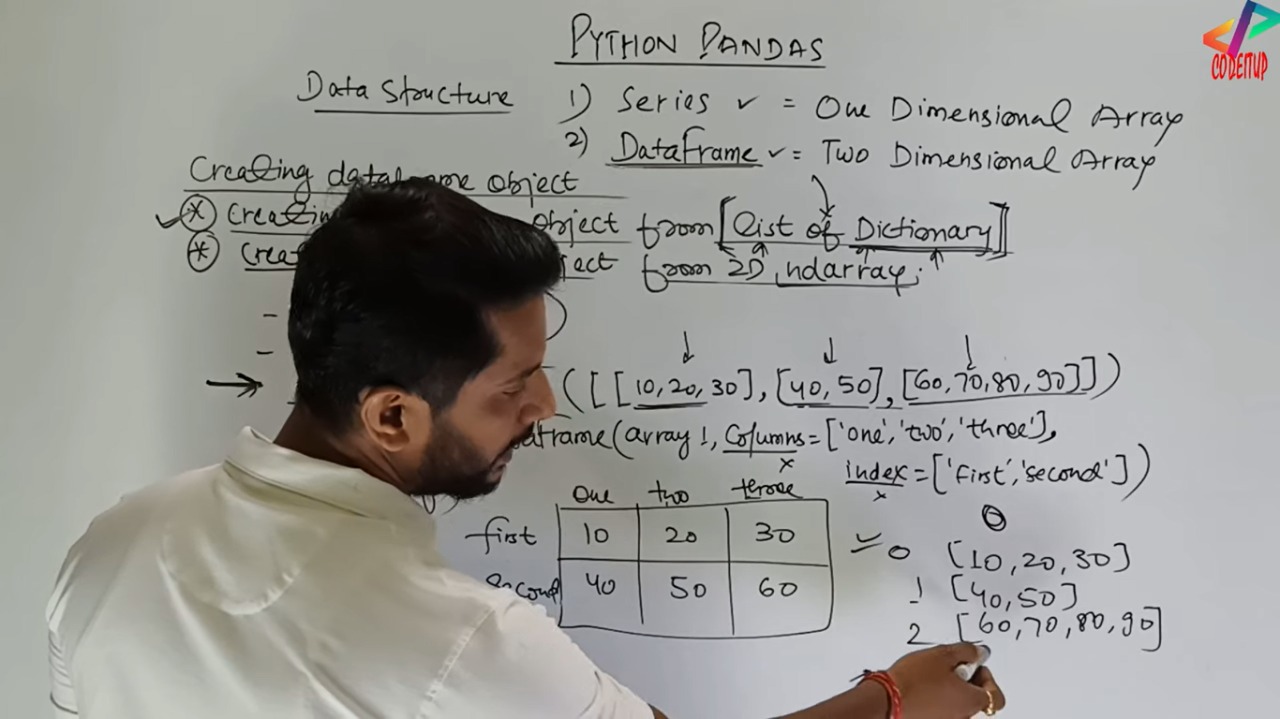 PYTHON PANDAS
CODEITUP
Data Structure
1) Series ✓ = One Dimensional Array
2) DataFrame ✓ = Two Dimensional Array
Creating dataframe object
✓ * Creating object from [List of Dictionary]
* from 2D ndarray.
-
-
→ ([[10,20,30],[40,50],[60,70,80,90]])
(array1, Columns=['one','two','three'],
x
index=['first','second'])
x
one two three
first 10 20 30
second 40 50 60
0
0 [10,20,30]
1 [40,50]
2 [60,70,80,90]